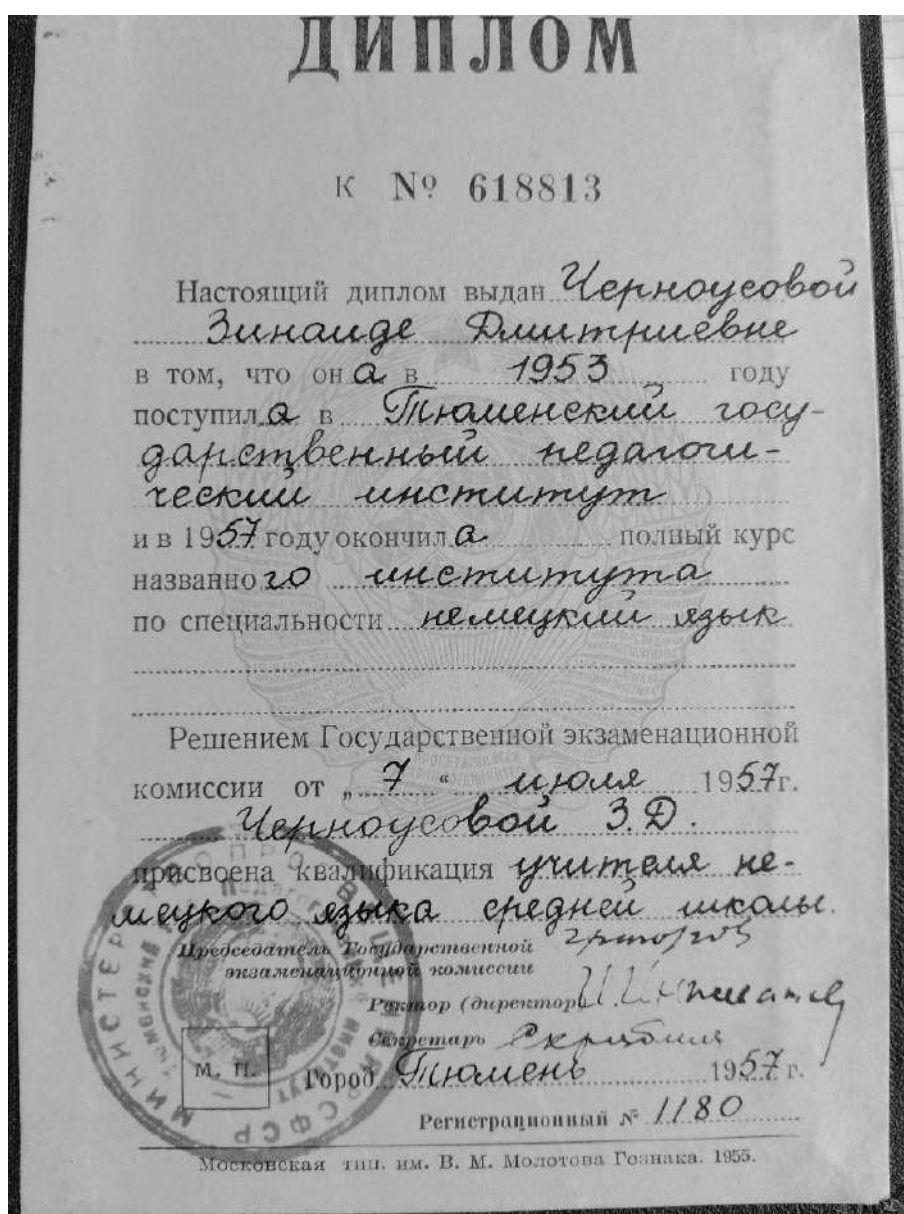 ДИПЛОМ
К № 618813
Настоящий диплом выдан Черноусовой
Зинаиде Дмитриевне
в том, что она в 1953 году
поступила в Тюменский госу-
дарственный педагоги-
ческий институт
и в 1957 году окончила полный курс
названного института
по специальности немецкий язык
Решением Государственной экзаменационной
комиссии от „7“ июля 1957г.
Черноусовой З.Д.
присвоена квалификация учителя не-
мецкого языка средней школы.
Председатель Государственной
экзаменационной комиссии
Ректор (директор)
Секретарь
М. П.
Город Тюмень 1957 г.
Регистрационный № 1180
Московская тип. им. В. М. Молотова Гознака. 1955.